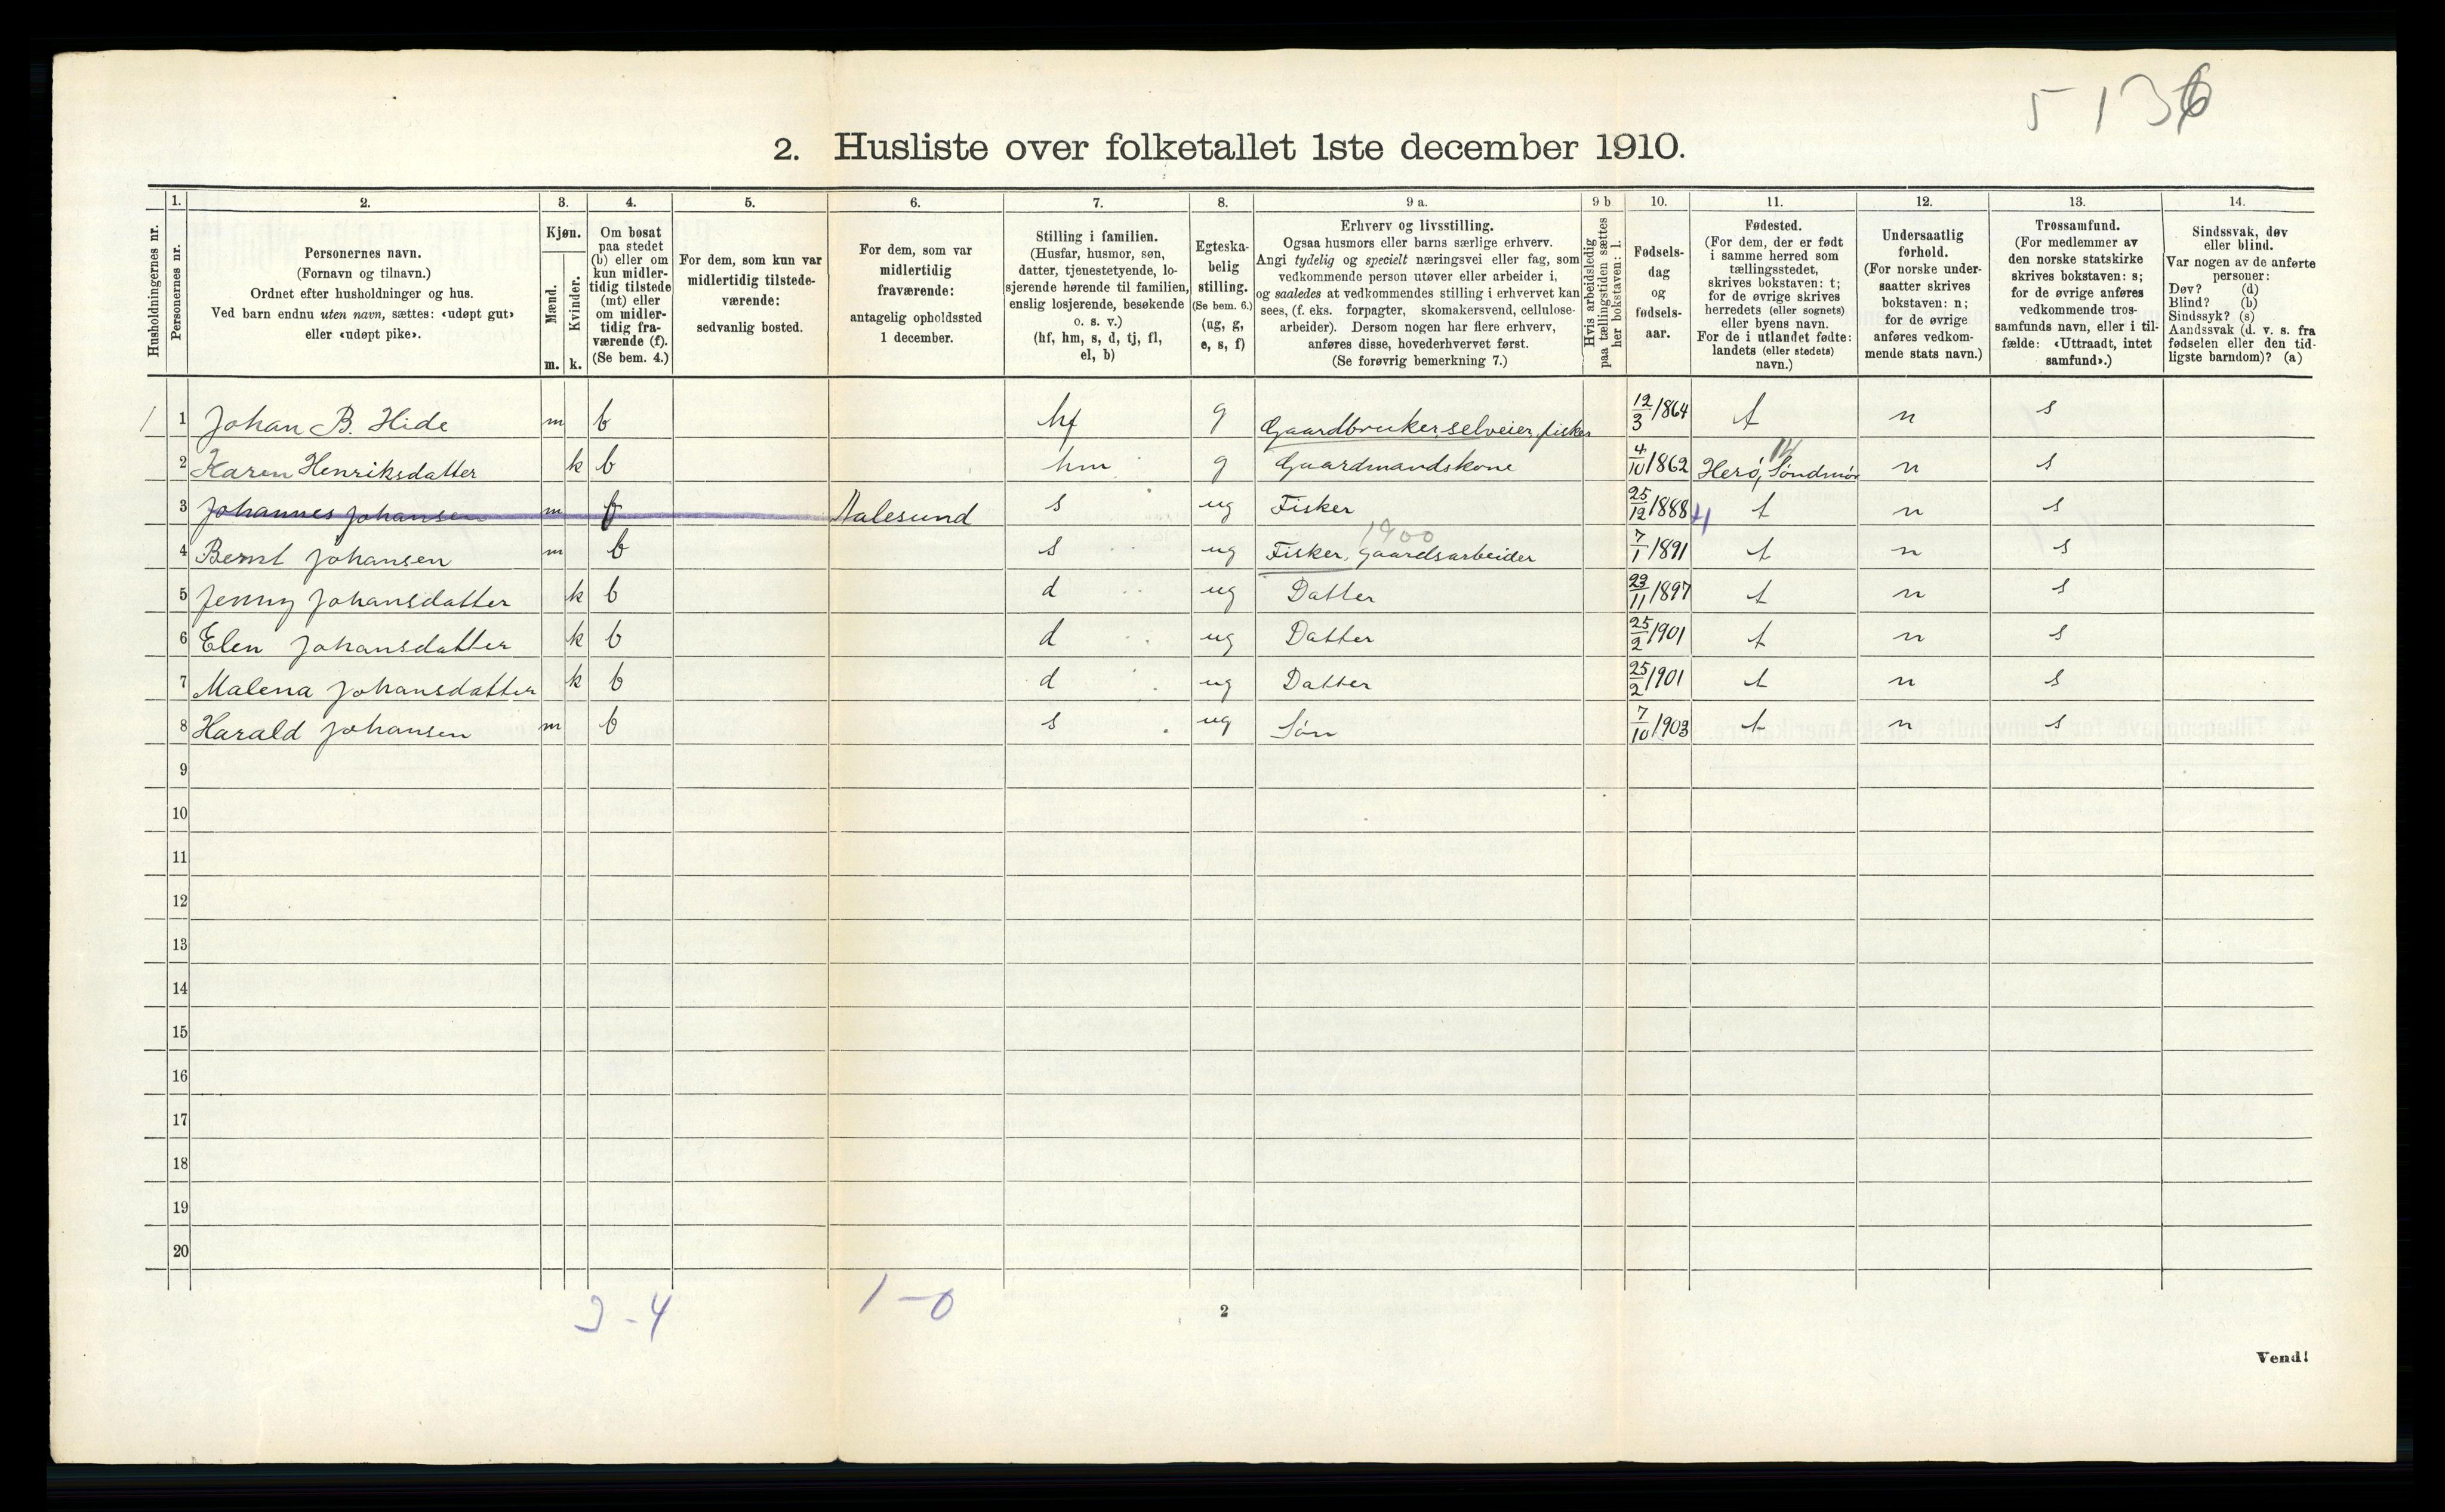 5 136
2. Husliste over folketallet 1ste december 1910.
Husholdningernes nr.
1. Personernes nr.
2. Personernes navn.
(Fornavn og tilnavn.)
Ordnet efter husholdninger og hus.
Ved barn endnu uten navn, sættes: «udøpt gut»
eller «udøpt pike».
3. Kjøn.
Mænd. m.
Kvinder. k.
4. Om bosat
paa stedet
(b) eller om
kun midler-
tidig tilstede
(mt) eller
om midler-
tidig fra-
værende (f).
(Se bem. 4.)
5. For dem, som kun var
midlertidig tilstede-
værende:
sedvanlig bosted.
6. For dem, som var
midlertidig
fraværende:
antagelig opholdssted
1 december.
7. Stilling i familien.
(Husfar, husmor, søn,
datter, tjenestetyende, lo-
sjerende hørende til familien,
enslig losjerende, besøkende
o. s. v.)
(hf, hm, s, d, tj, fl,
el, b)
8. Egteska-
belig
stilling.
(Se bem. 6.)
(ug, g,
e, s, f)
9 a. Erhverv og livsstilling.
Ogsaa husmors eller barns særlige erhverv.
Angi tydelig og specielt næringsvei eller fag, som
vedkommende person utøver eller arbeider i,
og saaledes at vedkommendes stilling i erhvervet kan
sees, (f. eks. forpagter, skomakersvend, cellulose-
arbeider). Dersom nogen har flere erhverv,
anføres disse, hovederhvervet først.
(Se forøvrig bemerkning 7.)
9 b Hvis arbeidsledig
paa tællingstiden sættes
her bokstaven: l.
10. Fødsels-
dag
og
fødsels-
aar.
11. Fødested.
(For dem, der er født
i samme herred som
tællingsstedet,
skrives bokstaven: t;
for de øvrige skrives
herredets (eller sognets)
eller byens navn.
For de i utlandet fødte:
landets (eller stedets)
navn.)
12. Undersaatlig
forhold.
(For norske under-
saatter skrives
bokstaven: n;
for de øvrige
anføres vedkom-
mende stats navn.)
13. Trossamfund.
(For medlemmer av
den norske statskirke
skrives bokstaven: s;
for de øvrige anføres
vedkommende tros-
samfunds navn, eller i til-
fælde: «Uttraadt, intet
samfund».)
14. Sindssvak, døv
eller blind.
Var nogen av de anførte
personer:
Døv? (d)
Blind? (b)
Sindssyk? (s)
Aandssvak (d. v. s. fra
fødselen eller den tid-
ligste barndom)? (a)
1 1 Johan B. Hide m b hf g Gaardbruker, selveier, fisker 12/3 1864 t n s
2 Karen Henriksdatter k b hm g Gaardmandskone 4/10 1862 Herø, Søndmør 14 n s
3 Johannes Johansen m f Aalesund s ug Fisker 25/12 1888 t n s
1900
4 Bernt Johansen m b s ug Fisker, gaardsarbeider 7/1 1891 t n s
5 Jenny Johansdatter k b d ug Datter 23/11 1897 t n s
6 Elen Johansdatter k b d ug Datter 25/2 1901 t n s
7 Malena Johansdatter k b d ug Datter 25/2 1901 t n s
8 Harald Johansen m b s ug Søn 7/10 1903 t n s
9
10
11
12
13
14
15
16
17
18
19
20
3-4 1-0
2
Vend!